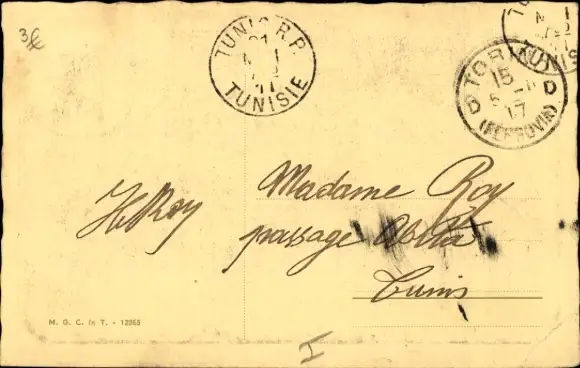 3€
TUNIS R.P.
21
TUNISIE
TORINO
15
17
(FERROVIA)
Madame Roy
HRoy
passage
Tunis
M. G. C. in T. - 12865
I